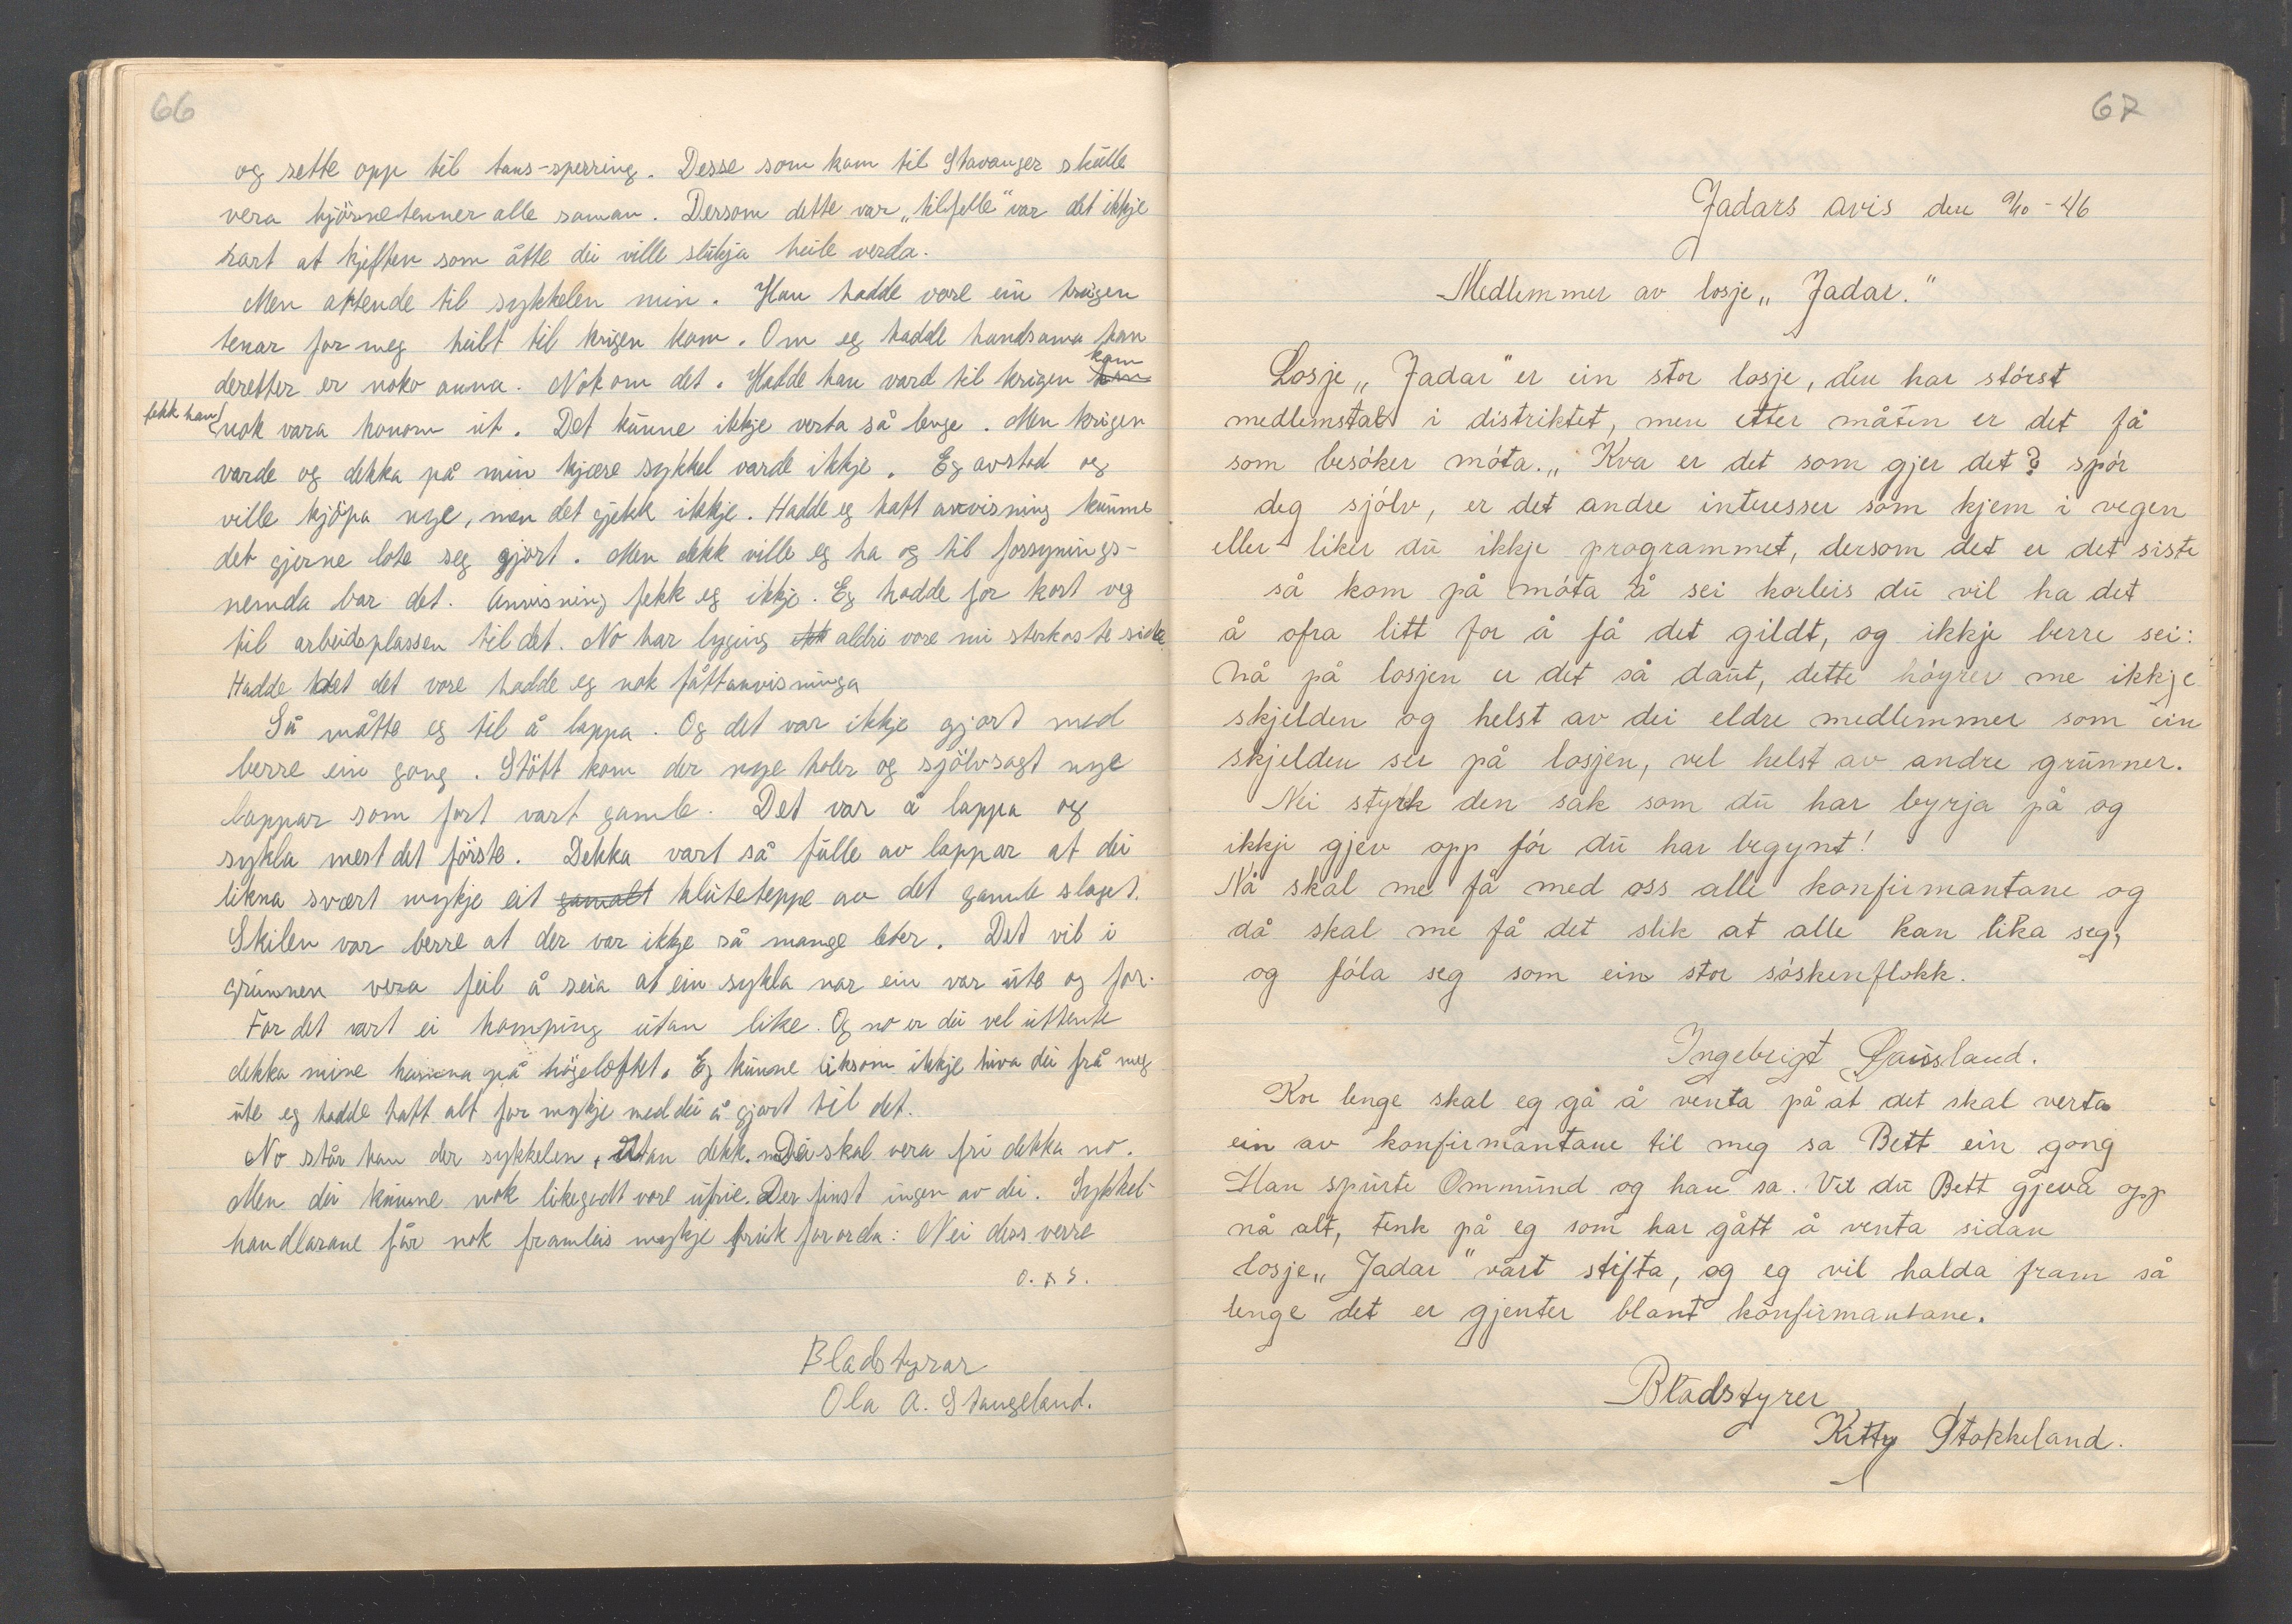 66
og sette opp til tans-sperring. Desse som kom til Stavanger skulle
vera hjörnetenner alle saman. Dersom dette var „tilfelle" var det ikkje
rart at kjeften som åtte dei ville sluka heile verda.
Men attende til sykkelen min. Han hadde vore ein trugen
tenar for meg heilt til krigen kom. Om eg hadde handsama han
deretter er noko anna. Nok om det. Hadde han vard til krigen kom
fekk han nok vara honom ut. Det kunne ikkje verta så lenge. Men krigen
varde og dekka på min kjære sykkel varde ikkje. Eg avstad og
ville kjöpa nye, men det gjekk ikkje. Hadde eg hatt anvisning kunne
det gjerne lote seg gjort. Men dekk ville eg ha og til forsynings-
nemda bar det. Anvisning fekk eg ikkje. Eg hadde for kort veg
til arbeidsplassen til det. No har lyging aldri vore mi sterkaste side.
Hadde det vore hadde eg nok fått anvisninga
Så måtte eg til å lappa. Og det var ikkje gjort med
berre ein gong. Stött kom der nye holer og sjölvsagt nye
lappar som fort vart gamle. Det var å lappa og
sykla mest det förste. Dekka vart så fulle av lappar at dei
likna svært mykje eit gamalt kluteteppe av det gamle slaget.
Skilen var berre at der var ikkje så mange leter. Det vil i
grunnen vera feil å seia at ein sykla nar ein var ute og for.
For det vart ei homping utan like. Og no er dei vel uttente
dekka mine på högeloftet. Eg kunne liksom ikkje hiva dei frå meg
ute eg hadde hatt alt for mykje med dei å gjort til det.
No står han der sykkelen, utan dekk. Dei skal vera fri dekka no.
Men dei kunne nok likegodt vore ufrie. Der finst ingen av dei. Sykkel-
handlarane får nok framleis mykje bruk for orda: Nei dess verre
O. A S.
Bladstyrar
Ola A. Stangeland.
67
Jadars avis den 9/10 - 46
Medlemmer av losje „Jadar."
Losje „Jadar" er ein stor losje, den har störst
medlemstal i distriktet, men etter måten er det få
som besöker möta. „Kva er det som gjer det? spör
deg sjölv, er det andre interesser som kjem i vegen
eller liker du ikkje programmet, dersom det er det siste
så kom på möta å sei korleis du vil ha det
å ofra litt for å få det gildt, og ikkje berre sei:
nå på losjen er det så daut, dette höyrer me ikkje
skjelden og helst av dei eldre medlemmer som ein
skjelden ser på losjen, vel helst av andre grunner.
Nei styrk den sak som du har byrja på og
ikkje gjev opp för du har begynt!
Nå skal me få med oss alle konfirmantane og
då skal me få det slik at alle kan lika seg,
og föla seg som ein stor söskenflokk.
Ingebrigt Paulsland.
Kor lenge skal eg gå å venta på at det skal verta
ein av konfirmantane til meg sa Bett ein gong
Han spurte Ommund og han sa. Vil du Bett gjeva opp
nå alt, tenk på eg som har gått å venta sidan
losje „Jadar" vart stifta, og eg vil halda fram så
lenge det er gjenter blant konfirmantane.
Bladstyrer
Kitty Stokkeland.